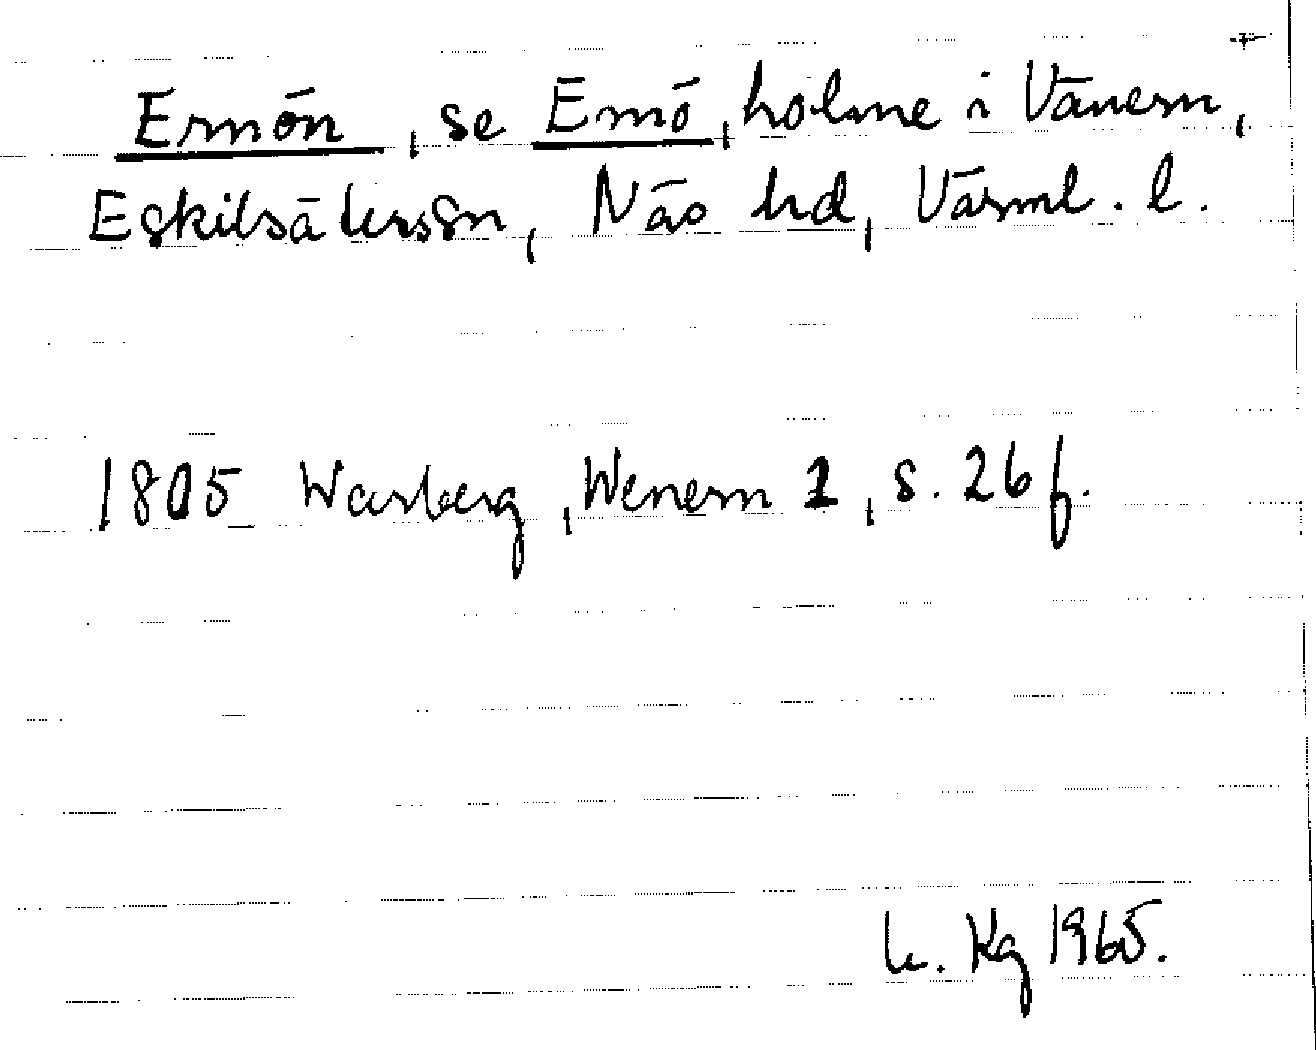 Ernön, se Ernö, holme i Vänern,
Eskilsäters sn, Näs hd, Värml. l.
1805 Warberg, Wenern 1, s. 26 f.
Kg 1965.